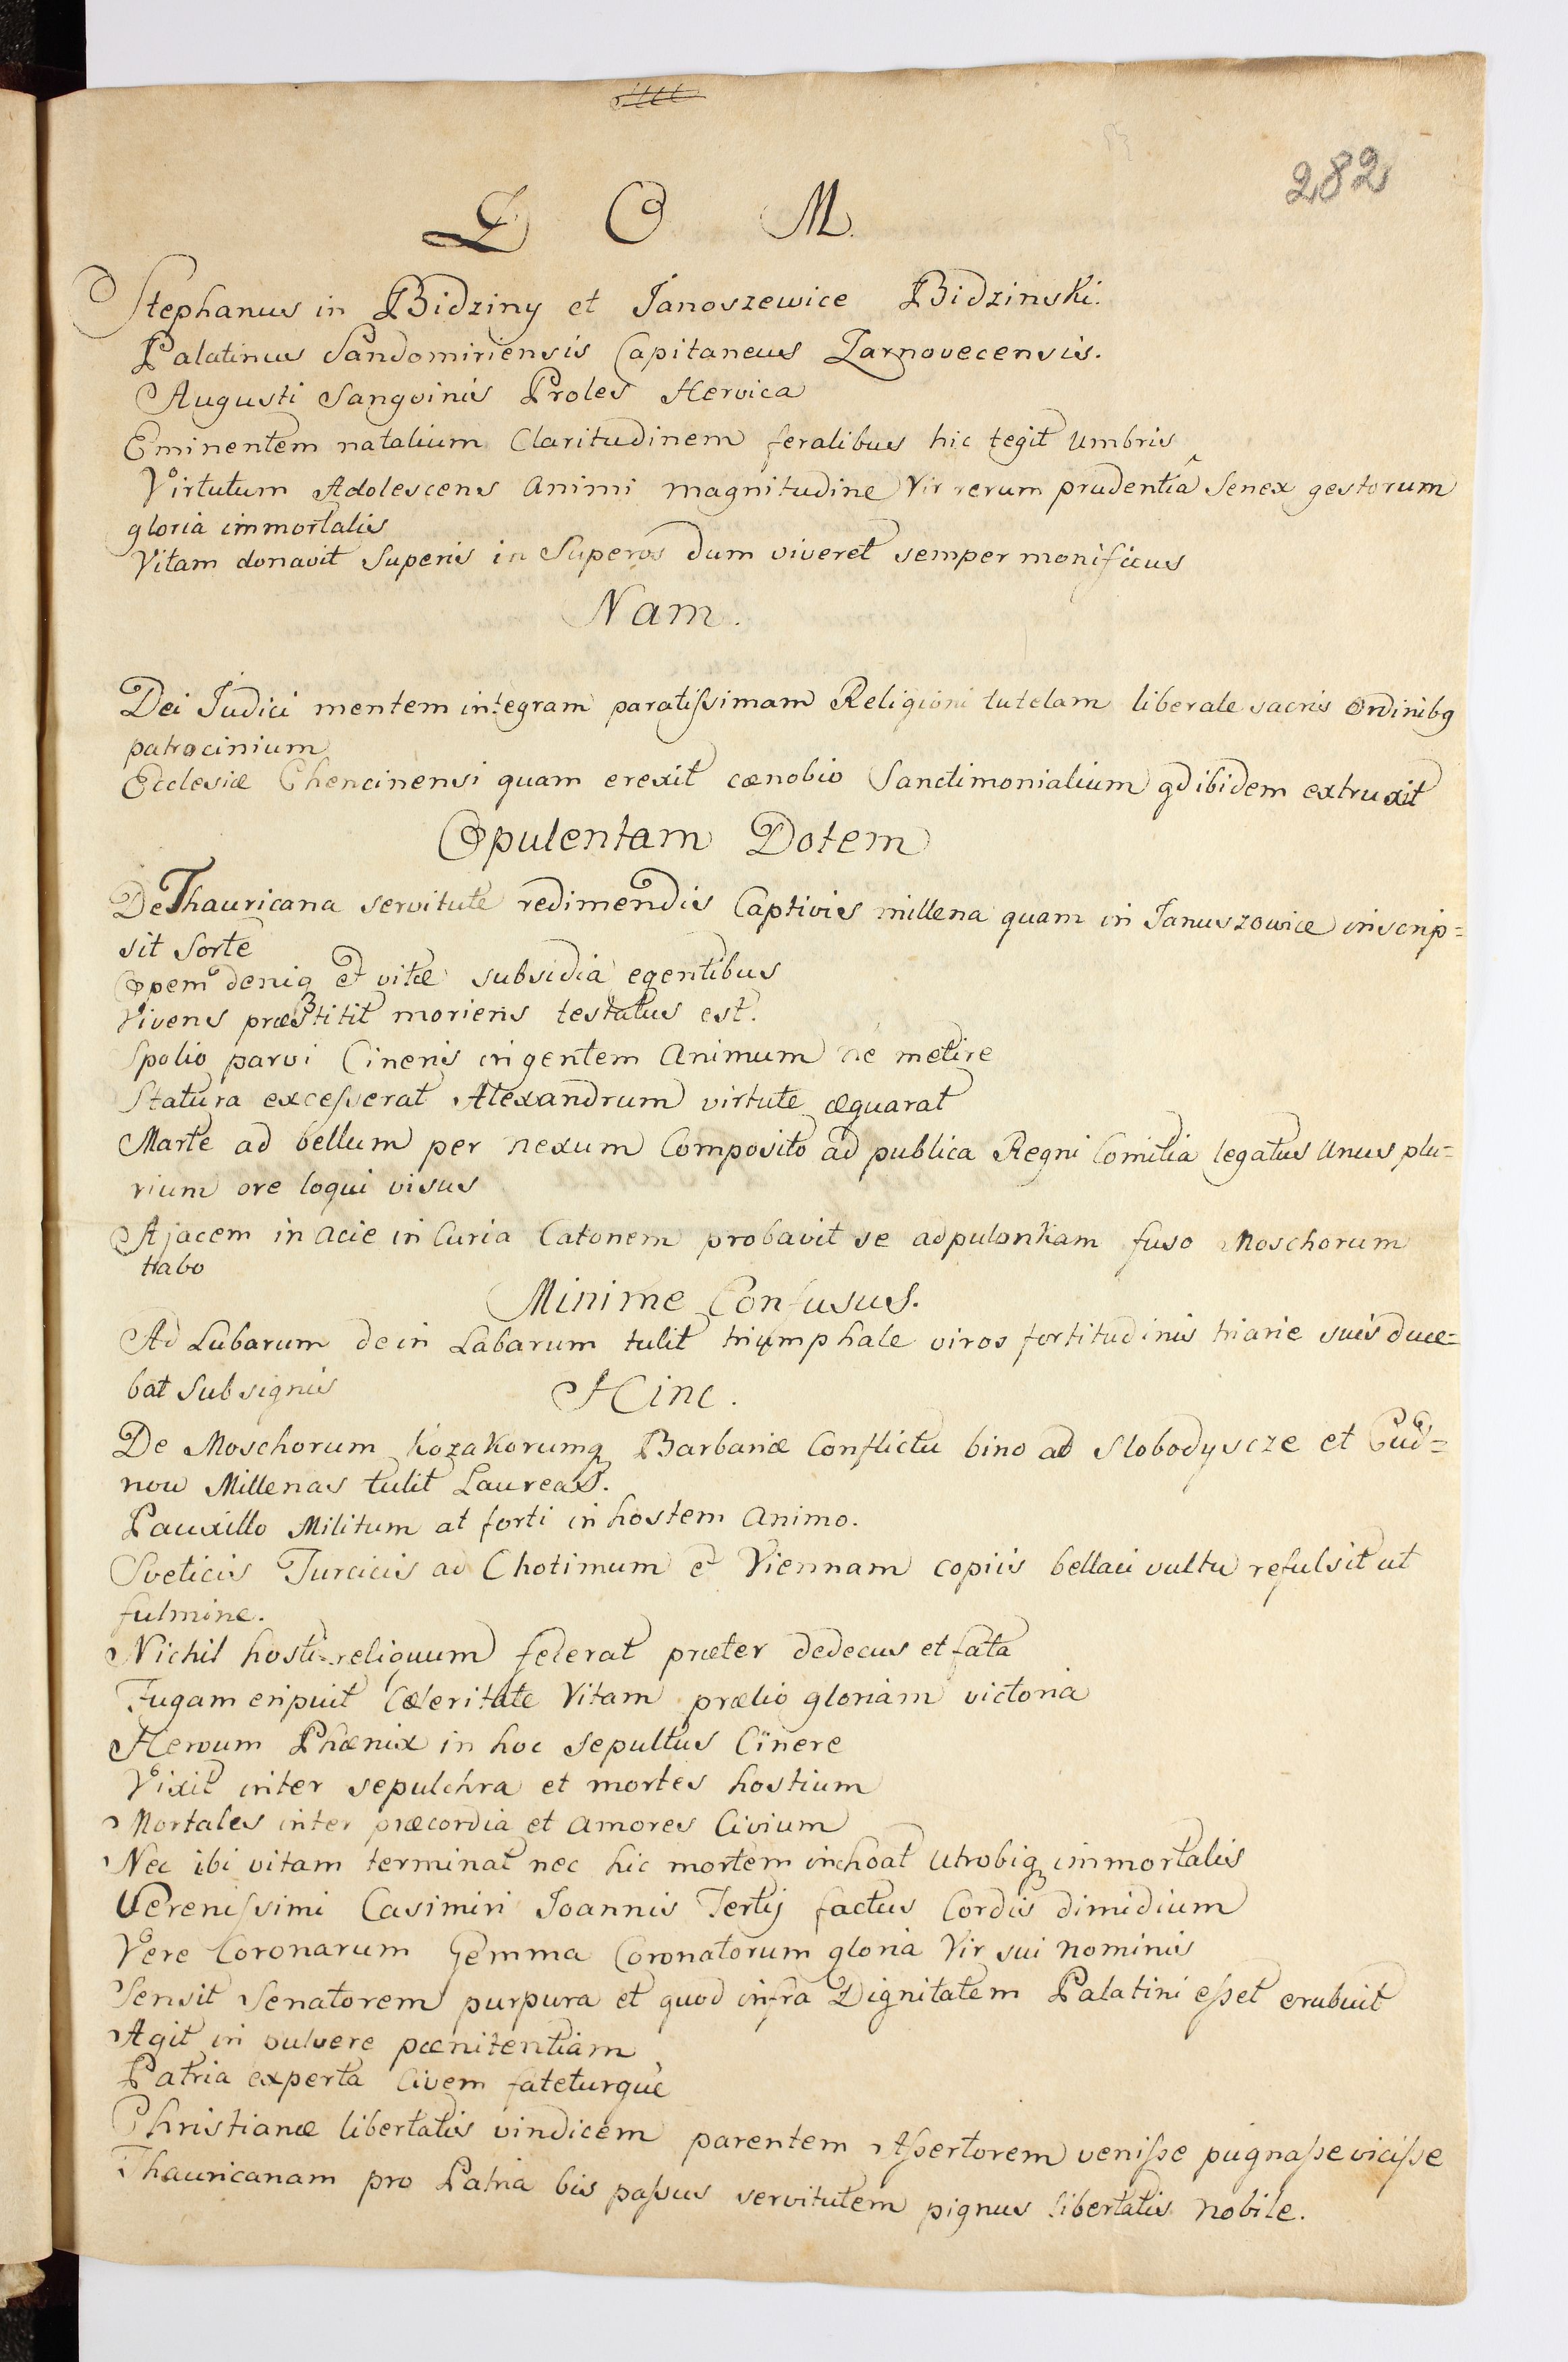 282
D O M.
Stephanus in Bidziny et Janoszewice Bidzinski.
Palatinus Sandomiriensis Capitaneus Zarnovecensis.
Augusti Sangvinis Proles Heroica
Eminentem natalium Claritudinem feralibus hic tegit Umbris
Virtutum Adolescens Animi magnitudine Vir rerum prudentiâ Senex gestorum
gloria immortalis
Vitam donavit Superis in Superos dum viveret semper monificus
Nam.
Dei Judici mentem integram paratissimam Religioni tutelam liberale sacris Ordinibq
patrocinium
Ecclesiæ Chencinensi quam erexit cœnobio Sanctimonialium qd ibidem extruxit
Opulentam Dotem
De Thauricana servitute redimendis Captivis millena quam in Januszowice inscrip=
sit Sorte
Opem deniq et vitæ subsidia egentibus
Vivens præstitit moriens testatus est.
Spolio parvi Cineris ingentem Animum ne metire
Statura excesserat Alexandrum virtute æquarat
Marte ad bellum per nexum Composito ad publica Regni Comitia legatus Unus plu=
rium ore loqui visus
Ajacem in acie in Curia Catonem probavit se ad pulonkam fuso Moschorum
tabo
Minime Confusus.
Ad Lubarum dein Labarum tulit triumphale viros fortitudinis triarie suis duce=
bat Sub signis
Hinc.
De Moschorum Kozakorumq Barbariæ Conflictu bino ad Slobodyscze et Cud=
now Millenas tulit Laureas.
Pauxillo Militum at forti in hostem Animo.
Sveticis Turcicis ad Chotimum et Viennam copiis bellaci vultu refulsit ut
fulmine.
Nichil hosti reliquum fecerat præter dedecus et fata
Fugam eripuit Cœleritate Vitam prælio gloriam victoria
Heroum Phœnix in hoc sepultus Cinere
Vixit inter sepulchra et mortes hostium
Mortales inter præcordia et Amores Civium
Nec ibi vitam terminat nec hic mortem inchoat Utrobiq immortalis
Serenissimi Casimiri Joannis Tertij factus Cordis dimidium
Vere Coronarum Gemma Coronatorum gloria Vir sui nominis
Sensit Senatorem purpura et quod infra Dignitatem Palatini esset erubuit
Agit in pulvere pœnitentiam
Patria experta Civem fateturque
Christianæ libertatis vindicem parentem Assertorem venisse pugnasse vicisse
Thauricanam pro Patria bis passus servitutem pignus libertatis nobile.